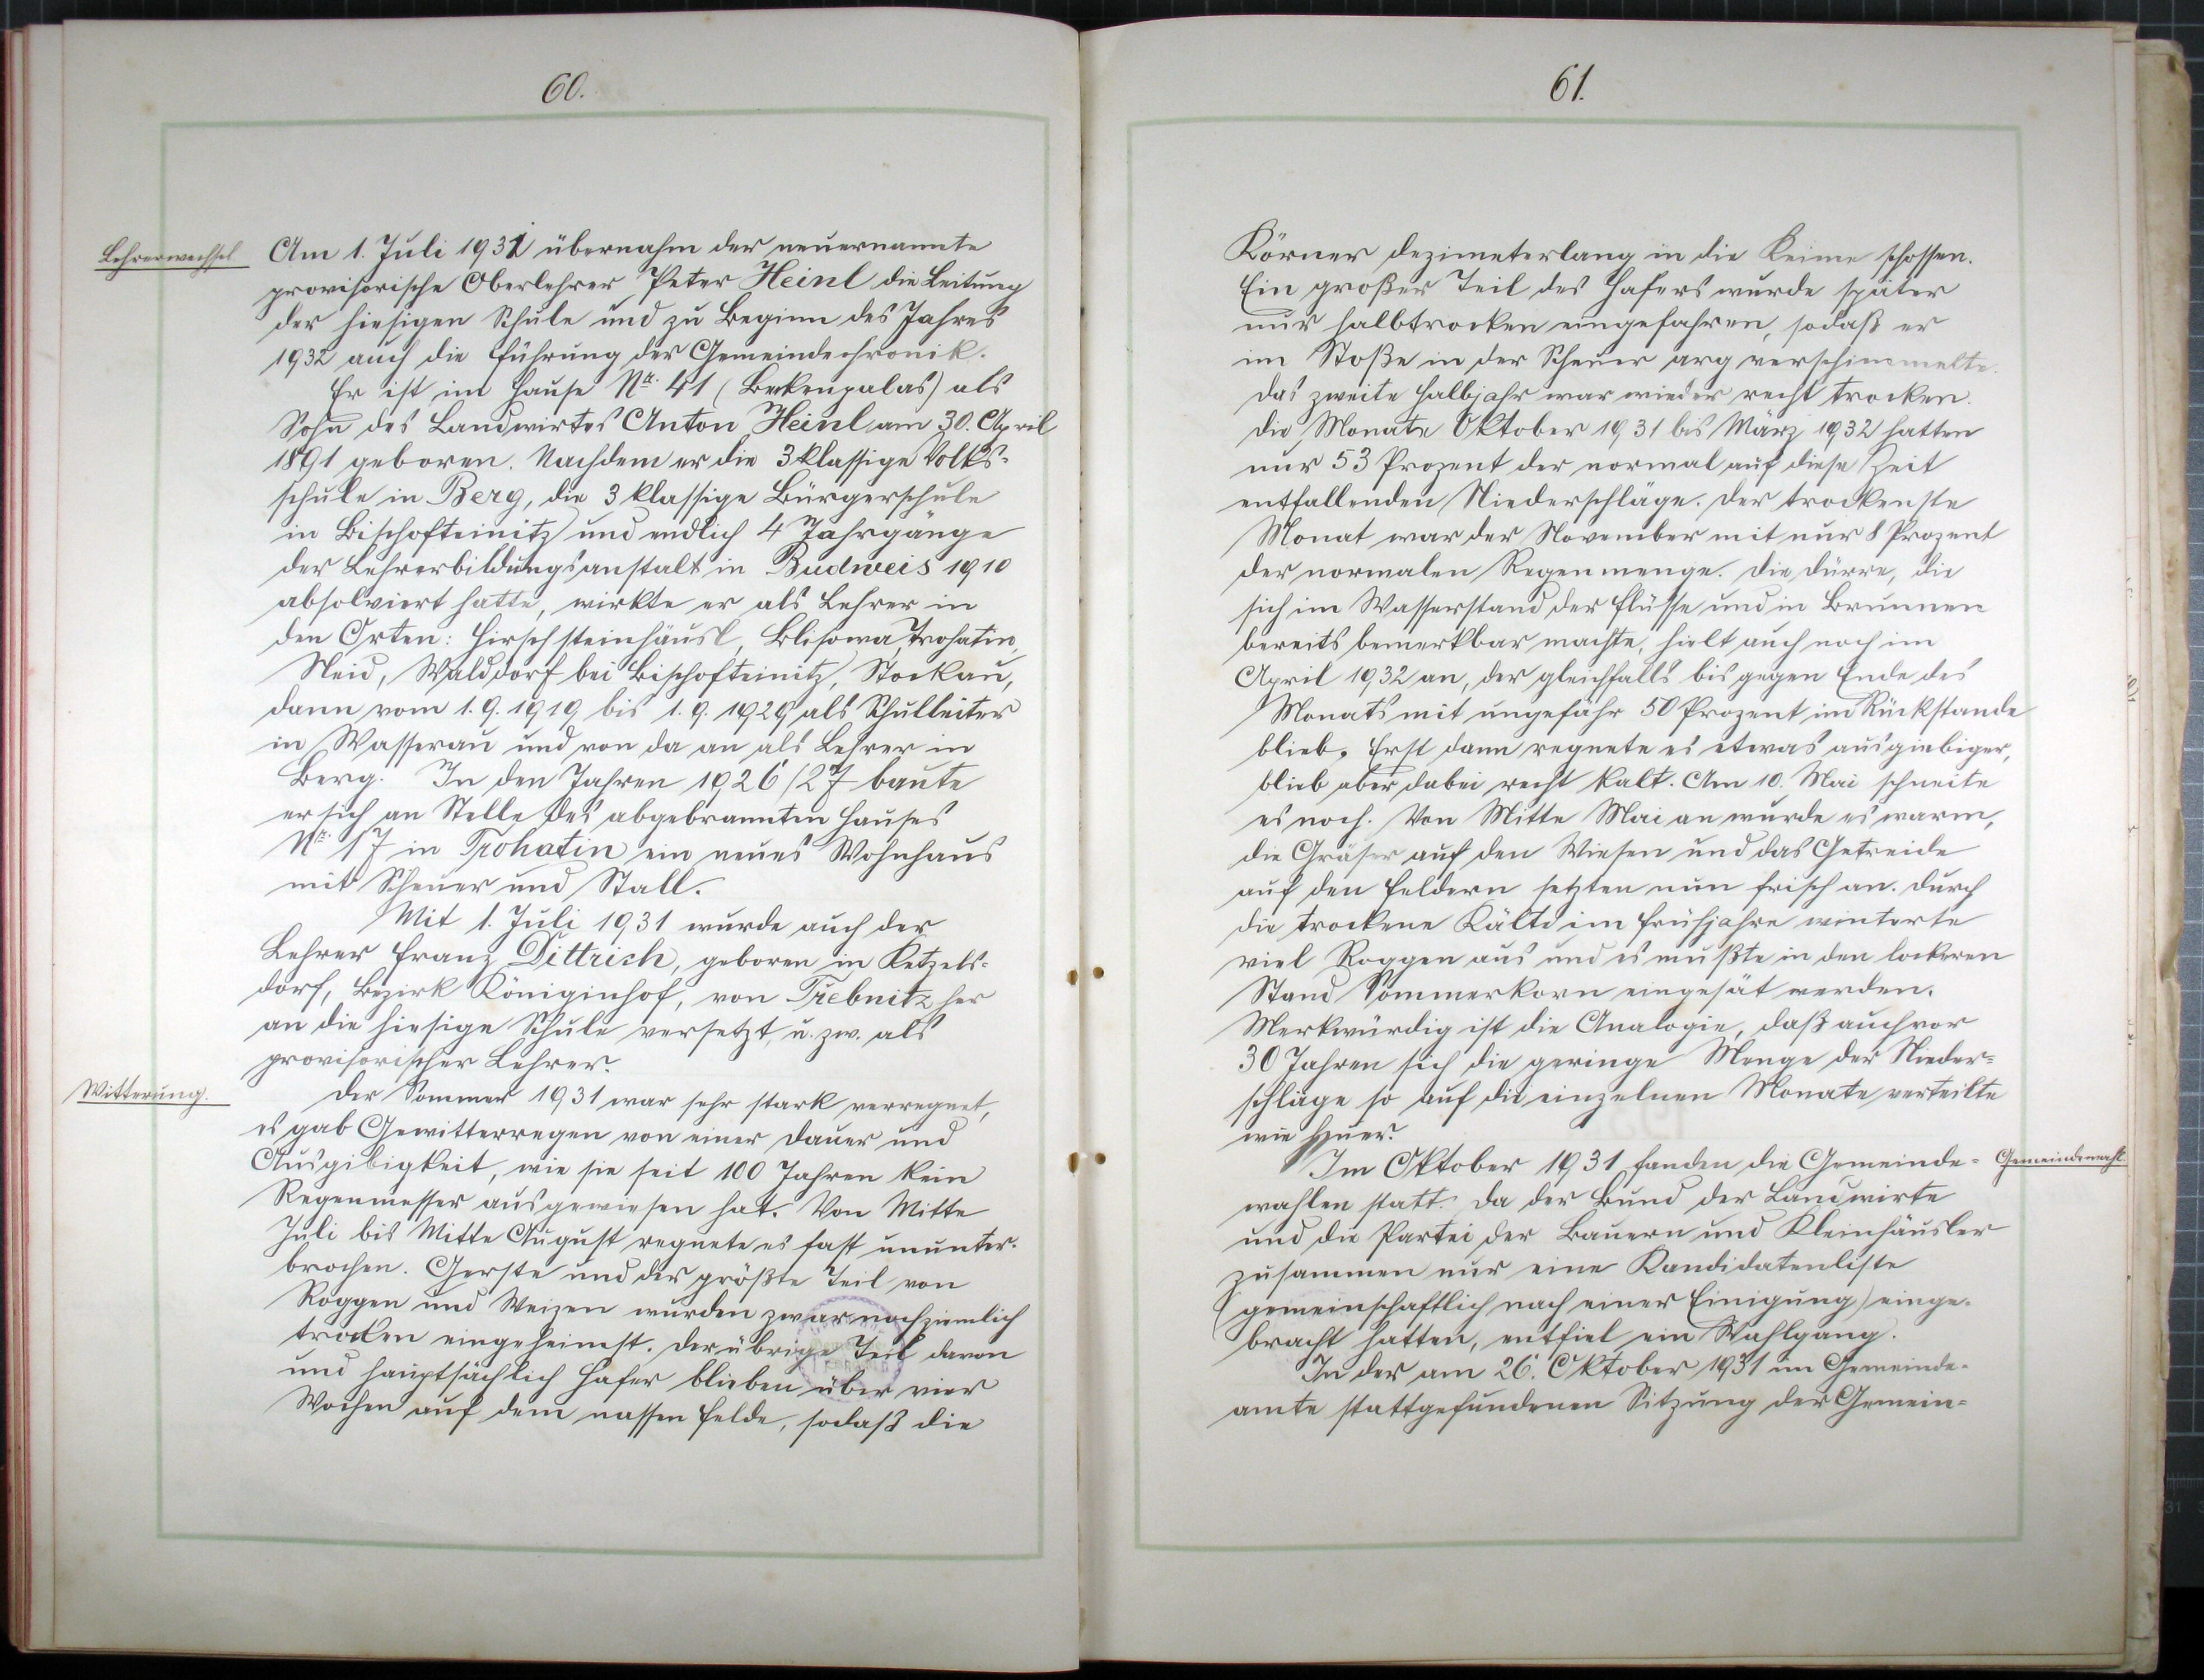 60.
Lehrerwechsel
Am 1. Juli 1931 übernahm der neuernannte
provisorische Oberlehrer Peter Heinl die Leitung
der hiesigen Schule und zu Beginn des Jahres
1932 auch die Führung der Gemeindechronik.
Er ist im Hause Nr. 41 (Beckenpalas) als
Sohn des Landwirtes Anton Heinl am 30. April
1891 geboren. Nachdem er die 3klassige Volks-
schule in Berg, die 3 klassige Bürgerschule
in Bischofteinitz und endlich 4 Jahrgänge
der Lehrerbildungsanstalt in Budweis 1910
absolviert hatte, wirkte er als Lehrer in
den Orten: Hirschsteinhäusl, Blisowa, Trohatin,
Neid, Walddorf bei Bischofteinitz, Stockau,
dann vom 1.9.1919 bis 1.9.1929 als Schulleiter
in Wasserau und von da an als Lehrer in
Berg. In den Jahren 1926/27 baute
er sich an Stelle des abgebrannten Hauses
Nr. 17 in Trohatin ein neues Wohnhaus
mit Scheuer und Stall.
Mit 1. Juli 1931 wurde auch der
Lehrer Franz Dittrich, geboren in Ketzels-
dorf, Bezirk Königinhof, von Třebnitz her
an die hiesige Schule versetzt, u. zw. als
provisorischer Lehrer.
Witterung.
Der Sommer 1931 war sehr stark verregnet,
es gab Gewitterregen von einer Dauer und
Ausgibigkeit, wie sie seit 100 Jahren kein
Regenmesser ausgewiesen hat. Von Mitte
Juli bis Mitte August regnete es fast ununter-
brochen. Gerste und der größte Teil von
Roggen und Weizen wurden zwar noch ziemlich
trocken eingeheimst. Der übrige Teil davon
und hauptsächlich Hafer blieben über vier
Wochen auf dem nassen Felde, sodaß die
61.
Körner dezimeterlang in die Keime schossen.
Ein großer Teil des Hafers wurde später
nur halbtrocken eingefahren, sodaß er
im Stoße in der Scheuer arg verschimmelte.
Das zweite Halbjahr war wieder recht trocken.
Die Monate Oktober 1931 bis März 1932 hatten
nur 53 Prozent der normal auf diese Zeit
entfallenden Niederschläge. Der trockenste
Monat war der November mit nur 8 Prozent
der normalen Regenmenge. Die Dürre, die
sich im Wasserstand der Flüsse und in Brunnen
bereits bemerkbar machte, hielt auch noch im
April 1932 an, der gleichfalls bis gegen Ende des
Monats mit ungefähr 50 Prozent im Rückstande
blieb. Erst dann regnete es etwas ausgiebiger,
blieb aber dabei recht kalt. Am 10. Mai schneite
es noch. Von Mitte Mai an wurde es warm,
die Gräser auf den Wiesen und das Getreide
auf den Feldern setzten nun frisch an. Durch
die trockene Kälte im Frühjahre winterte
viel Roggen aus und es mußte in den lockeren
Stand Sommerkorn eingesät werden.
Merkwürdig ist die Analogie, daß auch vor
30 Jahren sich die geringe Menge der Nieder-
schläge so auf die einzelnen Monate verteilte
wie heuer.
Im Oktober 1931 fanden die Gemeinde-
Gemeindewahl.
wahlen statt. Da der Bund der Landwirte
und die Partei der Bauern und Kleinhäusler
zusammen nur eine Kandidatenliste
(gemeinschaftlich nach einer Einigung) einge-
bracht hatten, entfiel ein Wahlgang.
In der am 26. Oktober 1931 im Gemeinde-
amte stattgefundenen Sitzung der Gemein-